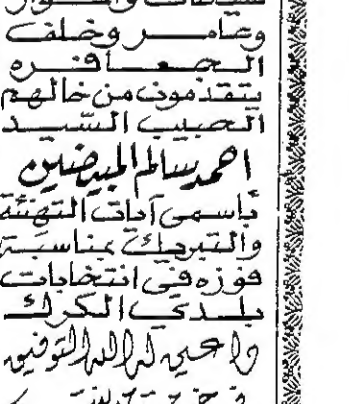 وعامر وخلف
الجعافره
يتقدمون من خالهم
الحبيب السيد
احمد سالم المبيضين
بأسمى آيات التهنئة
والتبريك بمناسبة
فوزه في انتخابات
بلدي الكرك
داعين له الله التوفيق